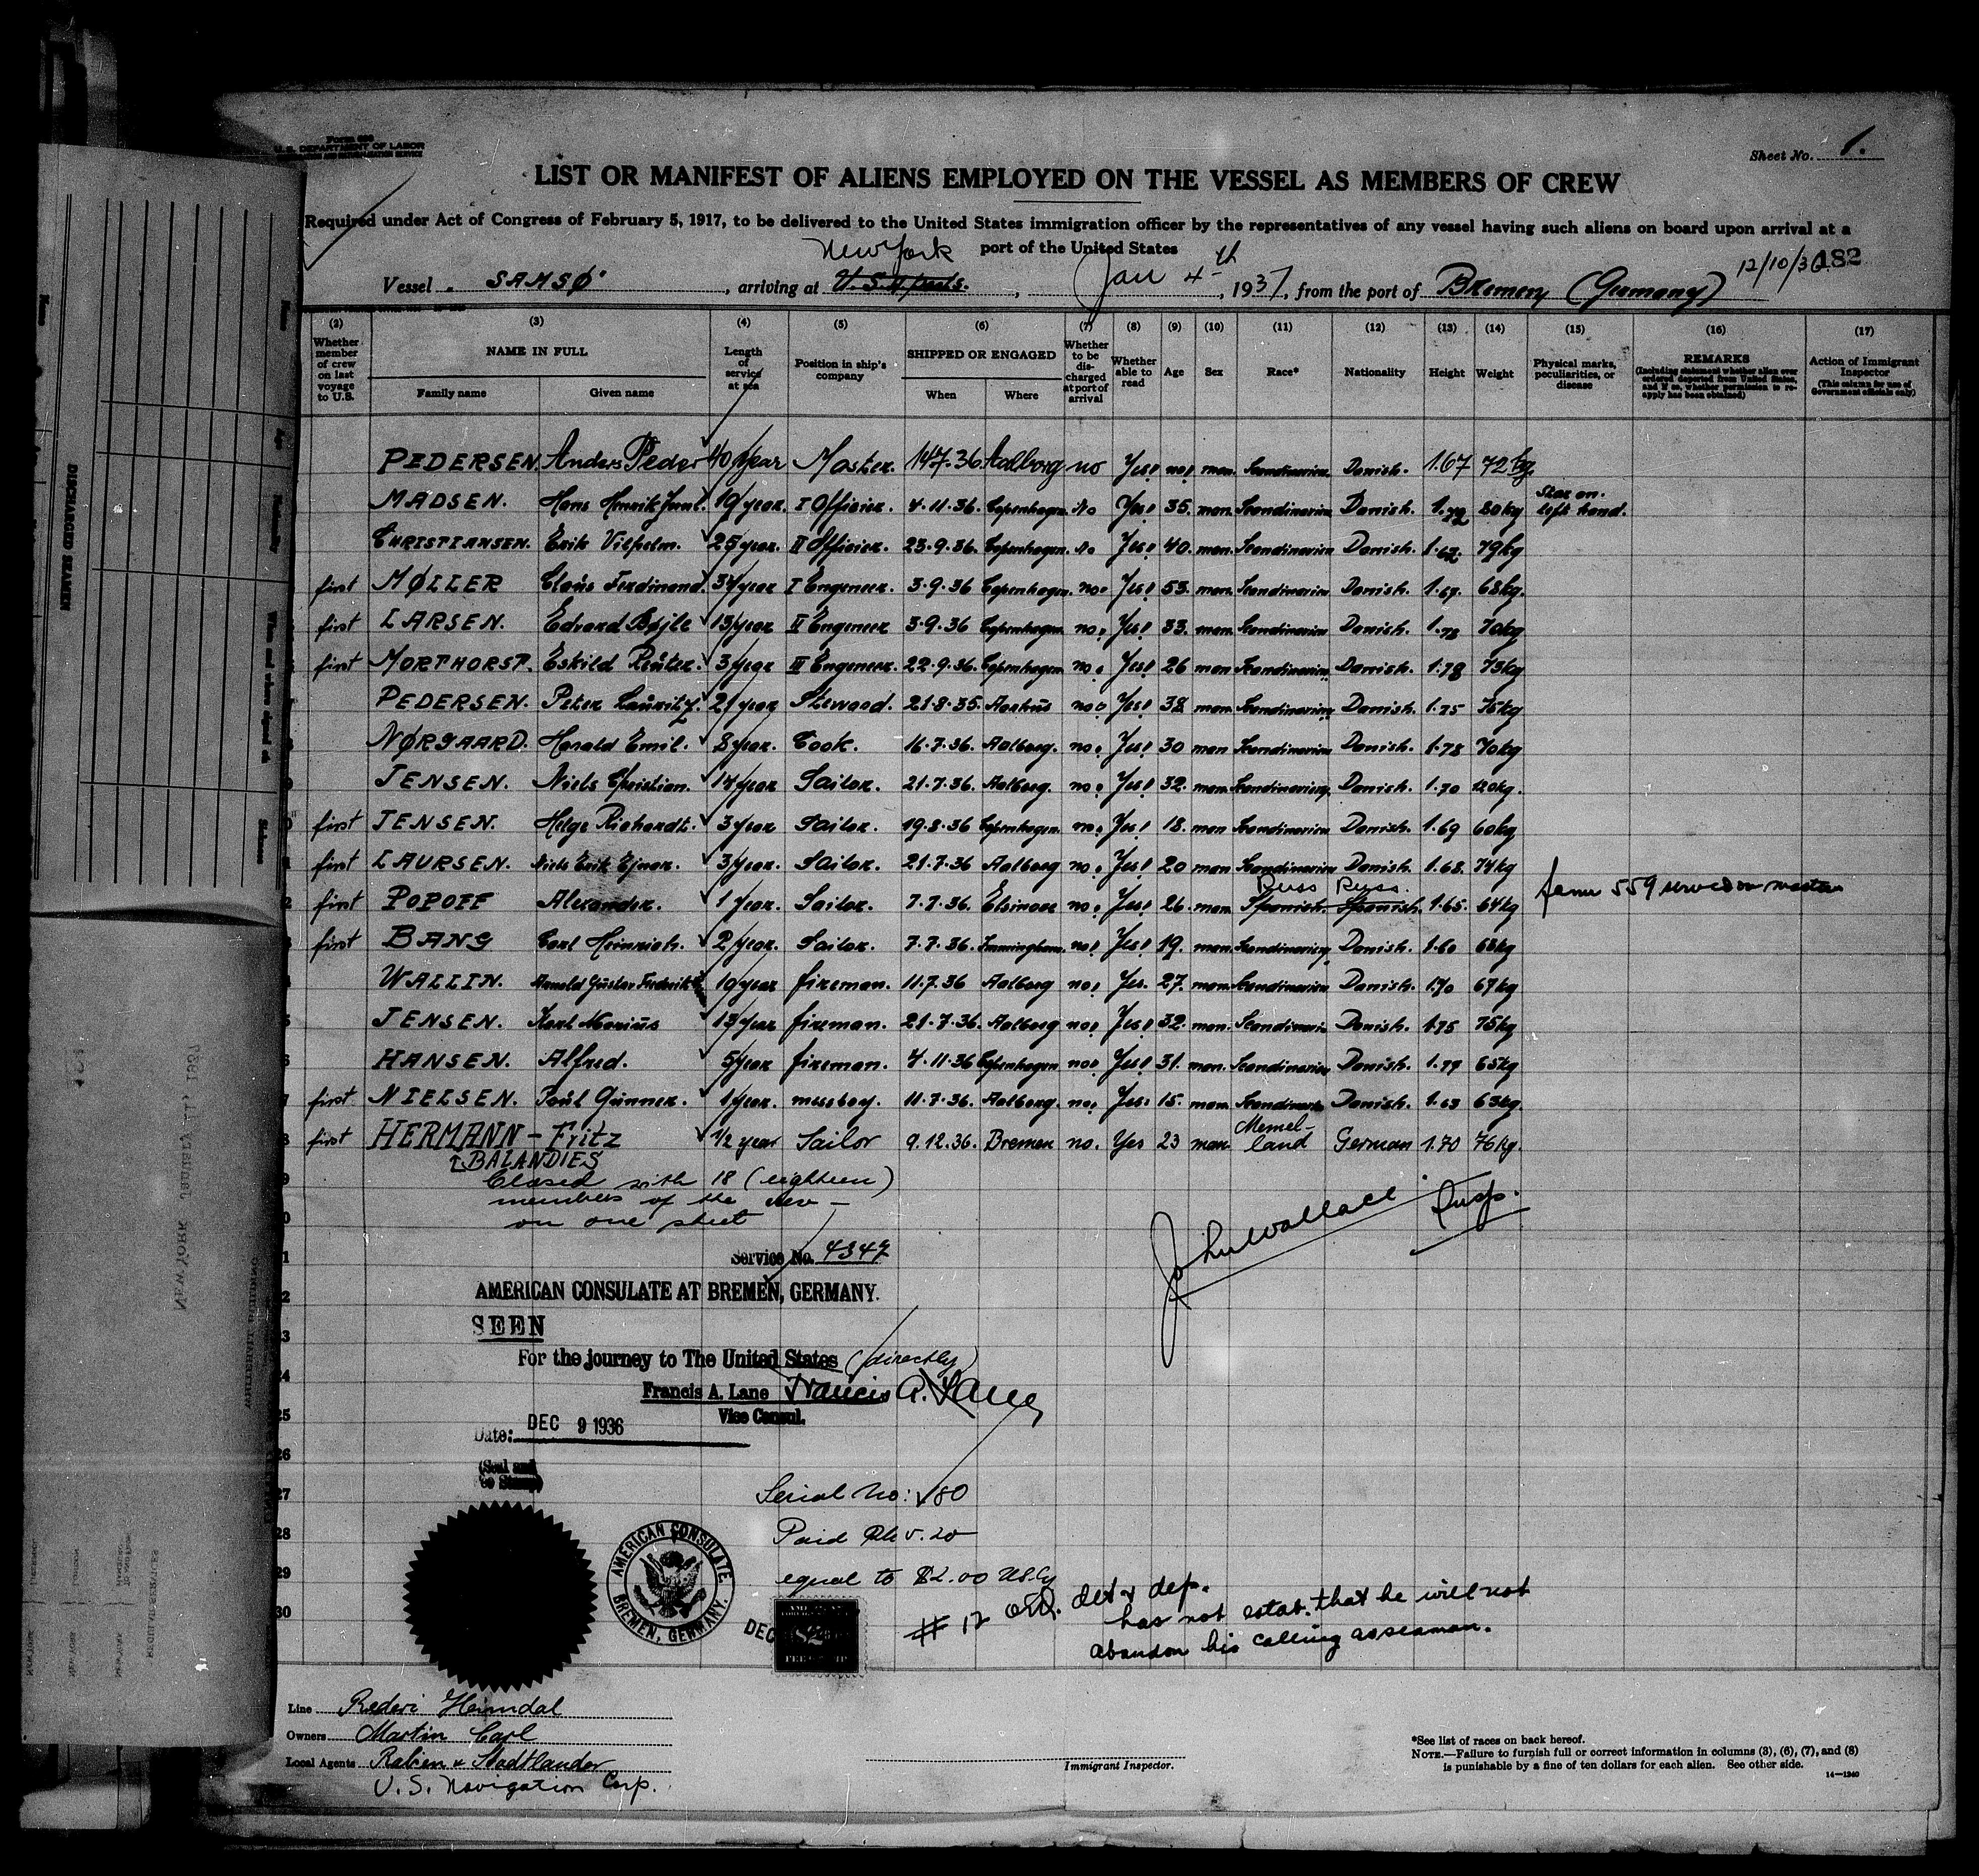 Form 689
U.S. DEPARTMENT OF LABOR
Sheet No. 1.
LIST OR MANIFEST OF ALIENS EMPLOYED ON THE VESSEL AS MEMBERS OF CREW
Required under Act of Congress of February 5, 1917, to be delivered to the United States immigration officer by the representatives of any vessel having such aliens on board upon arrival at a
port of the United States
New York
12/10/36 182
Vessel SAMSØ, arriving at U.S.A. ports., Jan 4th, 1937, from the port of Bremen (Germany)
(2) (3) (4) (5) (6) (7) (8) (9) (10) (11) (12) (13) (14) (15) (16) (17)
Whether member of crew on last voyage to U.S.
NAME IN FULL
Family name Given name
Length of service at sea
Position in ship's company
SHIPPED OR ENGAGED
When Where
Whether to be discharged at port of arrival
Whether able to read
Age
Sex
Race*
Nationality
Height
Weight
Physical marks, peculiarities, or disease
REMARKS
(Including statement whether alien ever ordered deported from United States and if so, whether permission to reapply has been obtained)
Action of Immigrant Inspector
(This column for use of Government officials only)
PEDERSEN Anders Peder 40 year Master. 14.7.36. Aalborg no Yes! man. Scandinavian Danish. 1.67 72 kg.
MADSEN. Hans Henrik Juul. 19 year. I Officier. 4.11.36. Copenhagen. No Yes! 35. man. Scandinavian Danish. 1.72 80kg Star on. left hand.
CHRISTIANSEN. Erik Vilhelm. 25 year. II Officier. 23.9.36. Copenhagen. No Yes! 40. man. Scandinavian Danish. 1.62. 79kg
first MØLLER Claus Ferdinand. 34 year I Engeneer. 3.9.36 Copenhagen. no. Yes! 53. man. Scandinavian Danish. 1.67. 68kg.
first LARSEN. Edvard Bøjle 13 year II Engeneer 3.9.36 Copenhagen no. Yes! 33. man. Scandinavian Danish. 1.78 70kg
first MORTHORST. Eskild Reuter. 3 year III Engeneer. 22.9.36. Copenhagen no. Yes! 26 man Scandinavian Danish. 1.78 73kg
PEDERSEN. Peter Lauritz. 21 year Steward. 21.8.35. Aarhus no. Yes! 38 man Scandinavian Danish. 1.75 75kg
NØRGAARD. Harald Emil. 8 year. Cook. 16.7.36. Aalborg. no. Yes! 30 man Scandinavian Danish. 1.78 70kg
JENSEN. Niels Christian. 14 year Sailor. 21.7.36. Aalborg. no. Yes! 32. man Scandinavian. Danish. 1.70 120kg.
first JENSEN. Helge Richardt. 3 year Sailor. 19.8.36 Copenhagen. no. Yes! 18. man Scandinavian Danish. 1.69 60kg
first LAURSEN. Niels Erik Ejnar. 3 year. Sailor. 21.7.36 Aalborg no. Yes! 20 man Scandinavian Danish. 1.68. 74kg
Russ Russ.
first POPOFF Alexander. 1 year. Sailor. 7.7.36. Elsinore no. Yes! 26. man Spanish. Spanish. 1.65. 64kg form 559 served on master
first BANG Carl Heinrich. 2 year. Sailor. 7.7.36. Immingham. no! Yes! 19. man Scandinavian Danish. 1.60 63kg
WALLIN. Arnold Gustav Frederik 19 year fireman. 11.7.36 Aalborg no! Yes. 27. man. Scandinavian. Danish. 1.70 67kg
JENSEN. Karl Marius 13 year fireman. 21.7.36. Aalborg no! Yes! 32. man. Scandinavian Danish. 1.75 75kg
HANSEN. Alfred. 5 year fireman. 4.11.36 Copenhagen no! Yes! 31. man. Scandinavian Danish. 1.77 65kg
first NIELSEN. Poul Gunner. 1 year. messboy. 11.7.36. Aalborg. no. Yes. 15. man. Scandinavian Danish. 1.63 63kg.
first HERMANN - Fritz 1/2 year Sailor 9.12.36. Bremen no. Yes 23 man Memel-land German 1.70 76kg.
BALANDIES
Closed with 18 (eighteen)
members of the crew -
on one sheet
John Wallace Insp.
Service No. 4347
AMERICAN CONSULATE AT BREMEN, GERMANY.
SEEN
For the journey to The United States (directly)
Francis A. Lane Francis A. Lane
Vice Consul.
Date: DEC 9 1936
Serial No: 180
Paid
equal to $2.00 US.Cy
AMERICAN CONSULATE. BREMEN, GERMANY.
DEC
$2
# 12 ord. det & dep.
has not estab. that he will not
abandon his calling as seaman.
Line Rederi Heimdal
Owners Martin Carl
Local Agents Rabien & Stadtlander
U.S. Navigation Corp.
Immigrant Inspector.
*See list of races on back hereof.
NOTE.—Failure to furnish full or correct information in columns (3), (6), (7), and (8)
is punishable by a fine of ten dollars for each alien. See other side.
14—1240
DISCHARGED SEAMEN